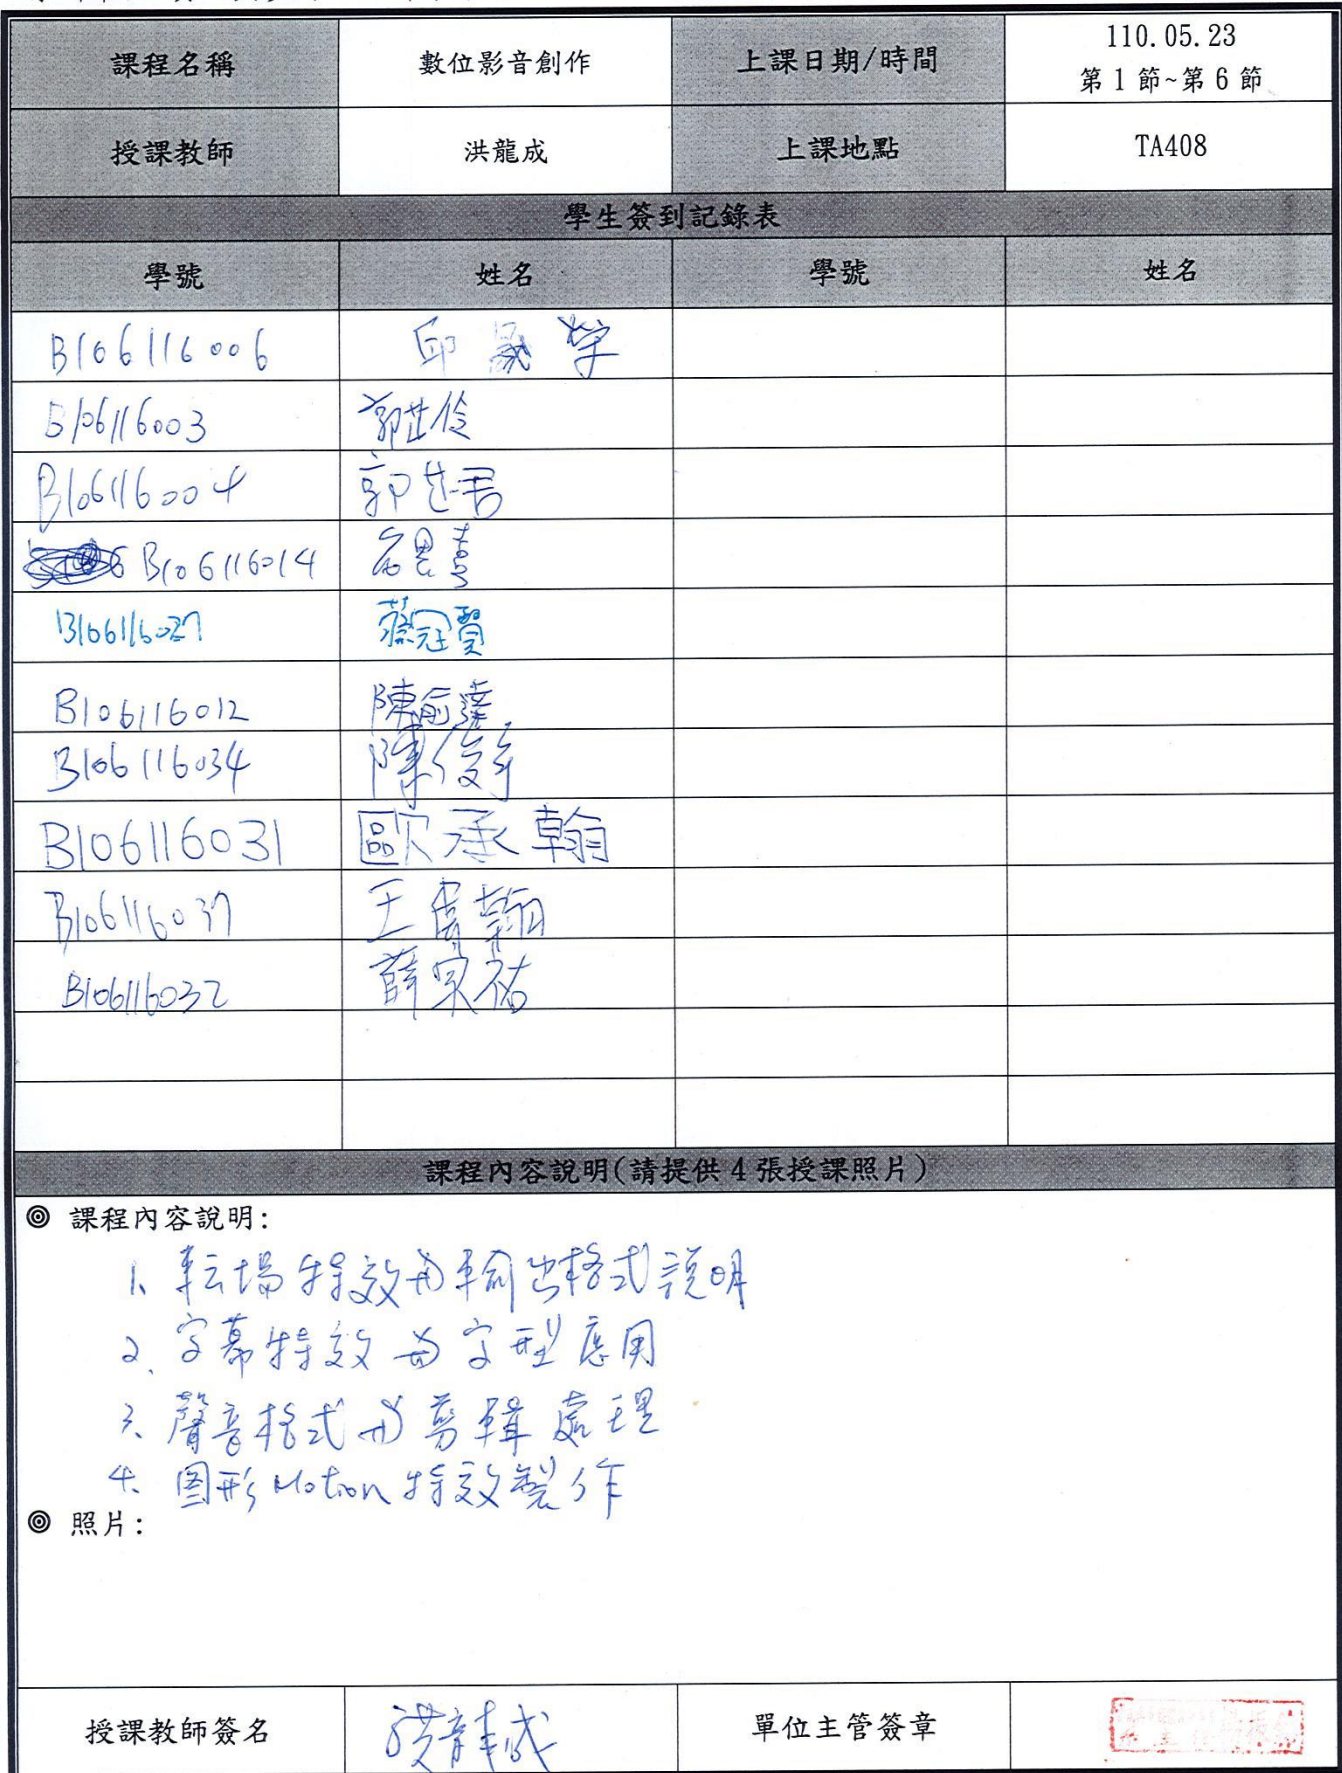 課程名稱 數位影音創作 上課日期/時間 110.05.23
第 1 節~第 6 節
授課教師 洪龍成 上課地點 TA408
學生簽到記錄表
學號 姓名 學號 姓名
B106116006 邱 榮
B106116003 郭芷伶
B106116004 郭芷君
B106116014 喜
B106116027 蔡冠賢
B106116012 陳俞達
B106116034 陳俊宇
B106116031 歐承翰
B106116037 王 翰
B106116032 薛宗祐
課程內容說明(請提供 4 張授課照片)
◎ 課程內容說明:
1. 転場特效與輸出格式說明
2. 字幕特效與字型應用
3. 聲音格式與剪輯處理
4. 图形 Motion 特效製作
◎ 照片:
授課教師簽名 洪龍成 單位主管簽章